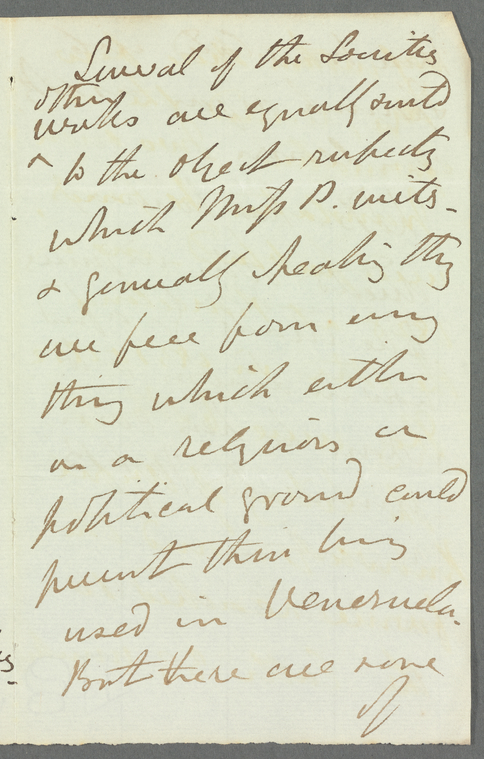 Several of the Societies
other
works are equally suited
^ to the object respecting
which Miss D. writes -
& generally speaking they
are free from every
thing which either
on a religious or
political ground could
prevent their being
used in Venezuela.
But there are none
of